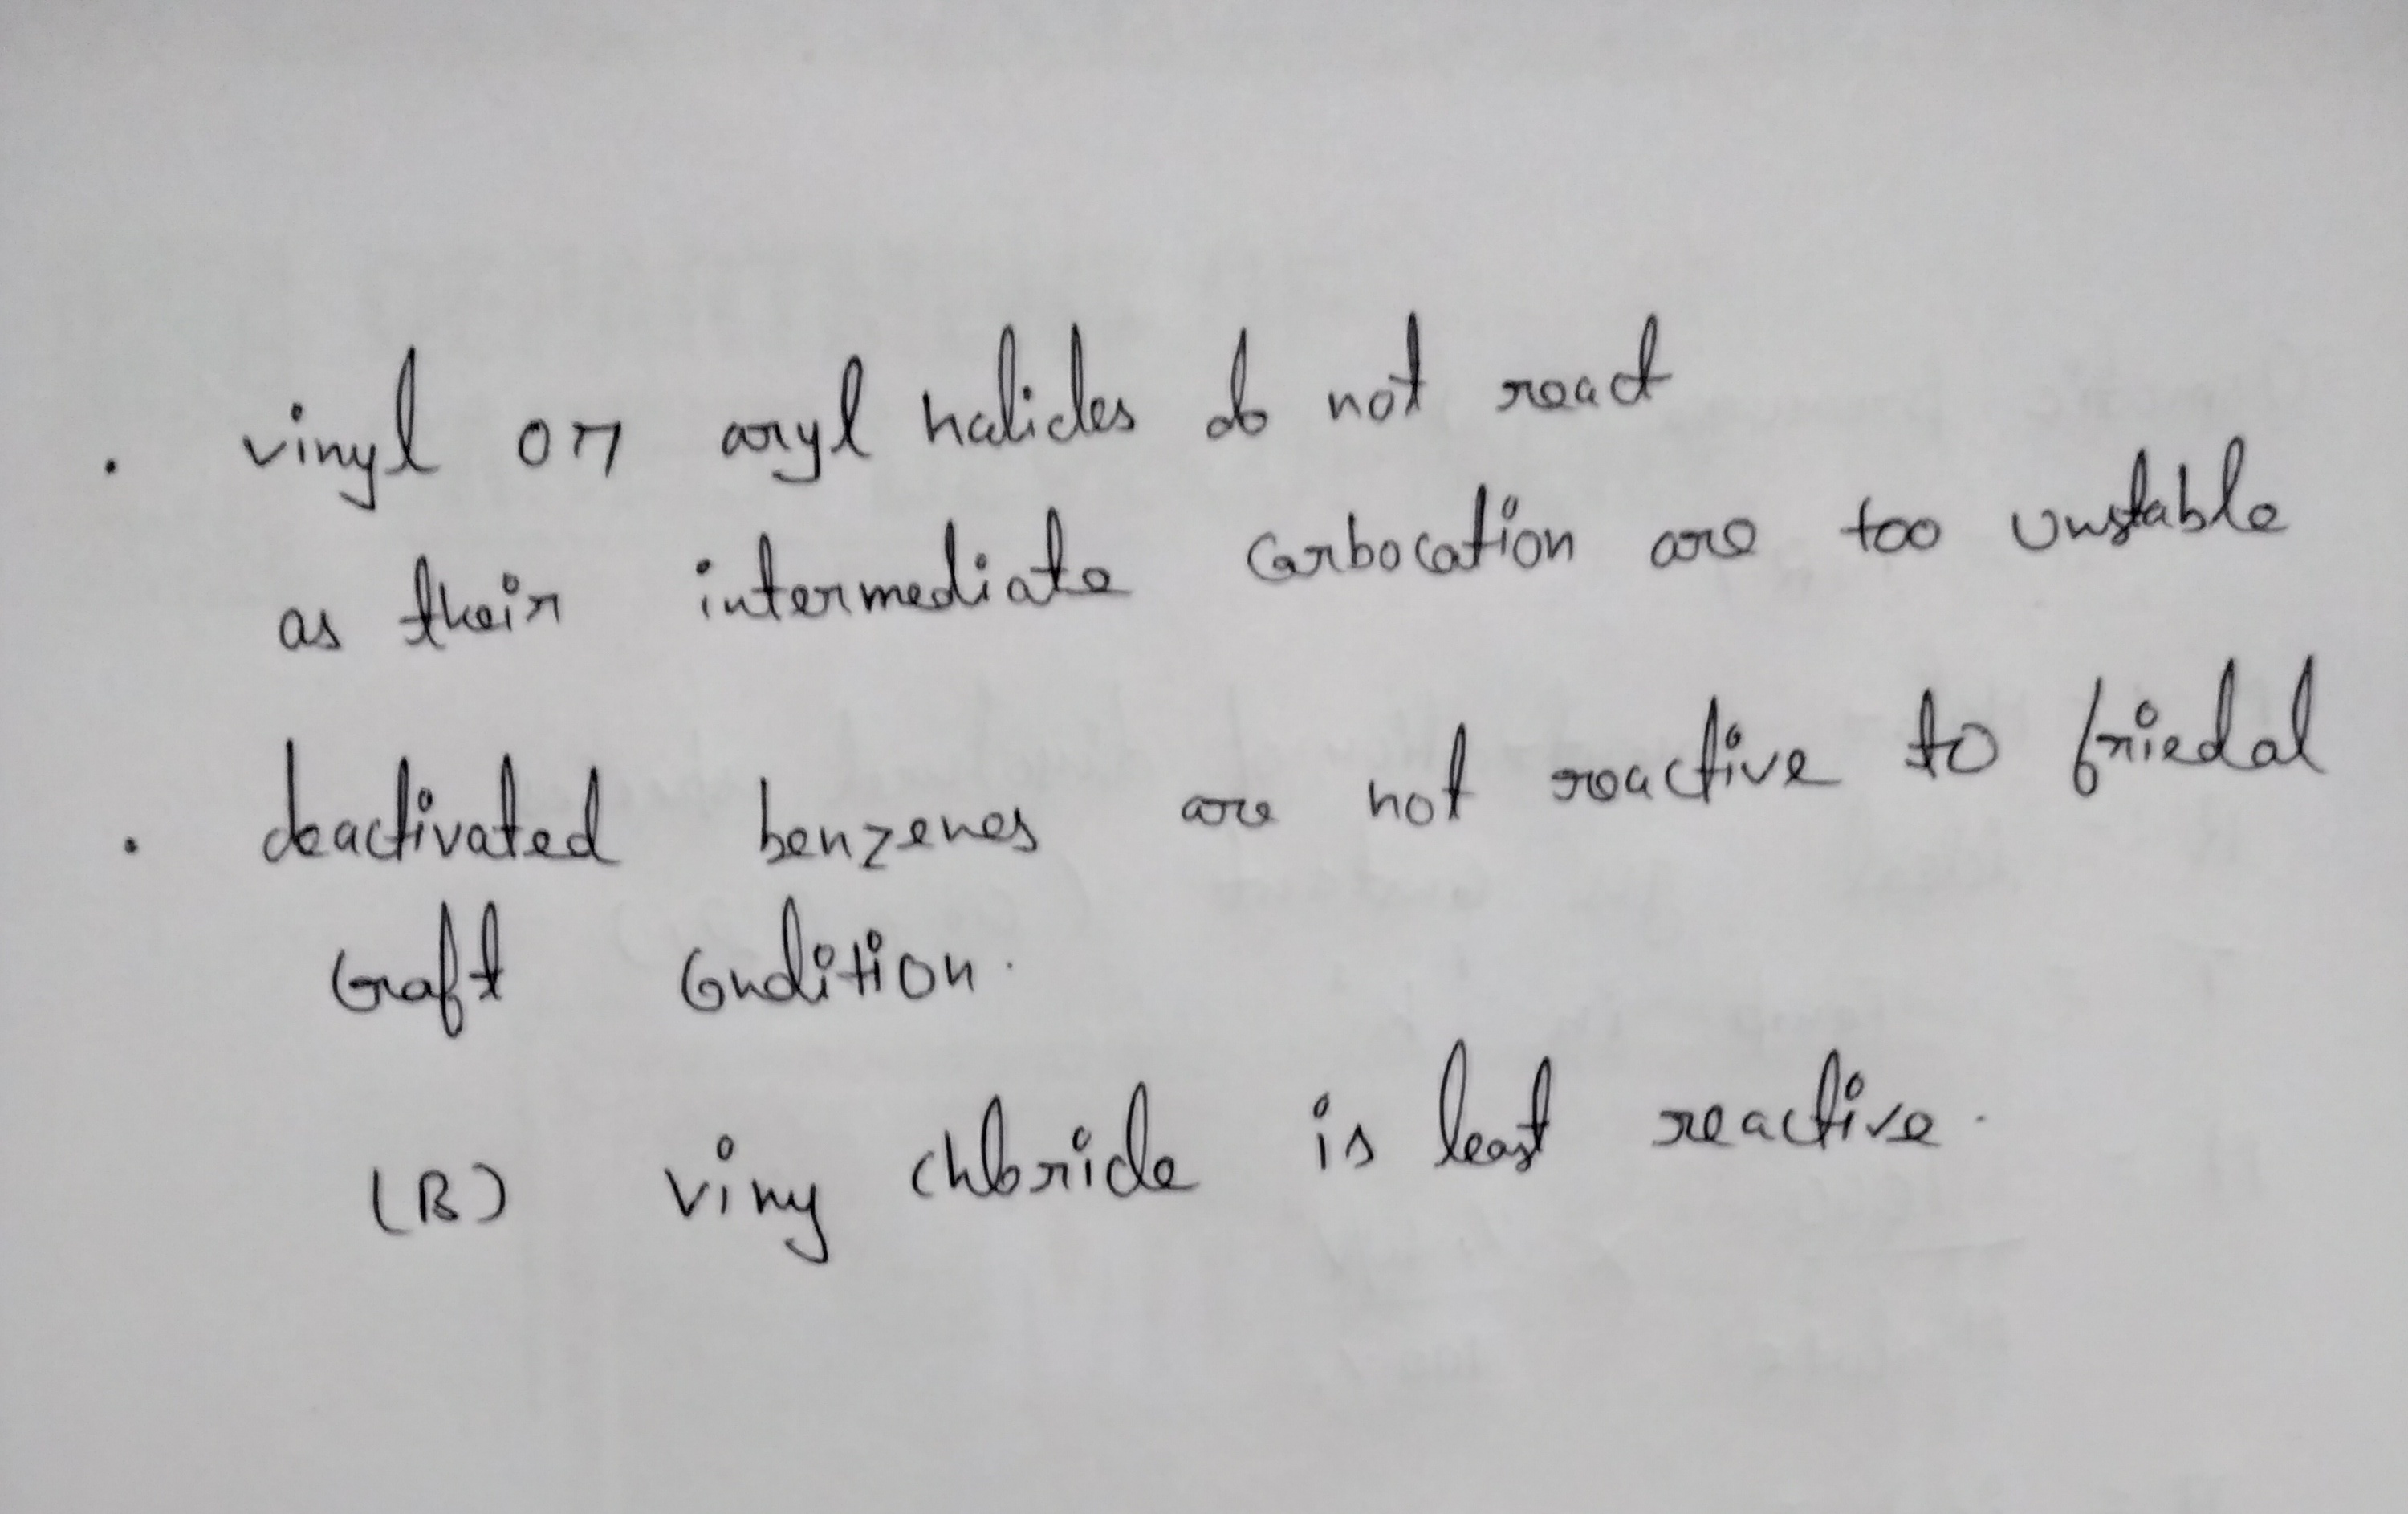 . vinyl or aryl halides do not react
as their intermediate carbocation are too unstable
. deactivated benzenes are not reactive to friedal
craft condition.
(B) viny chloride is least reactive.